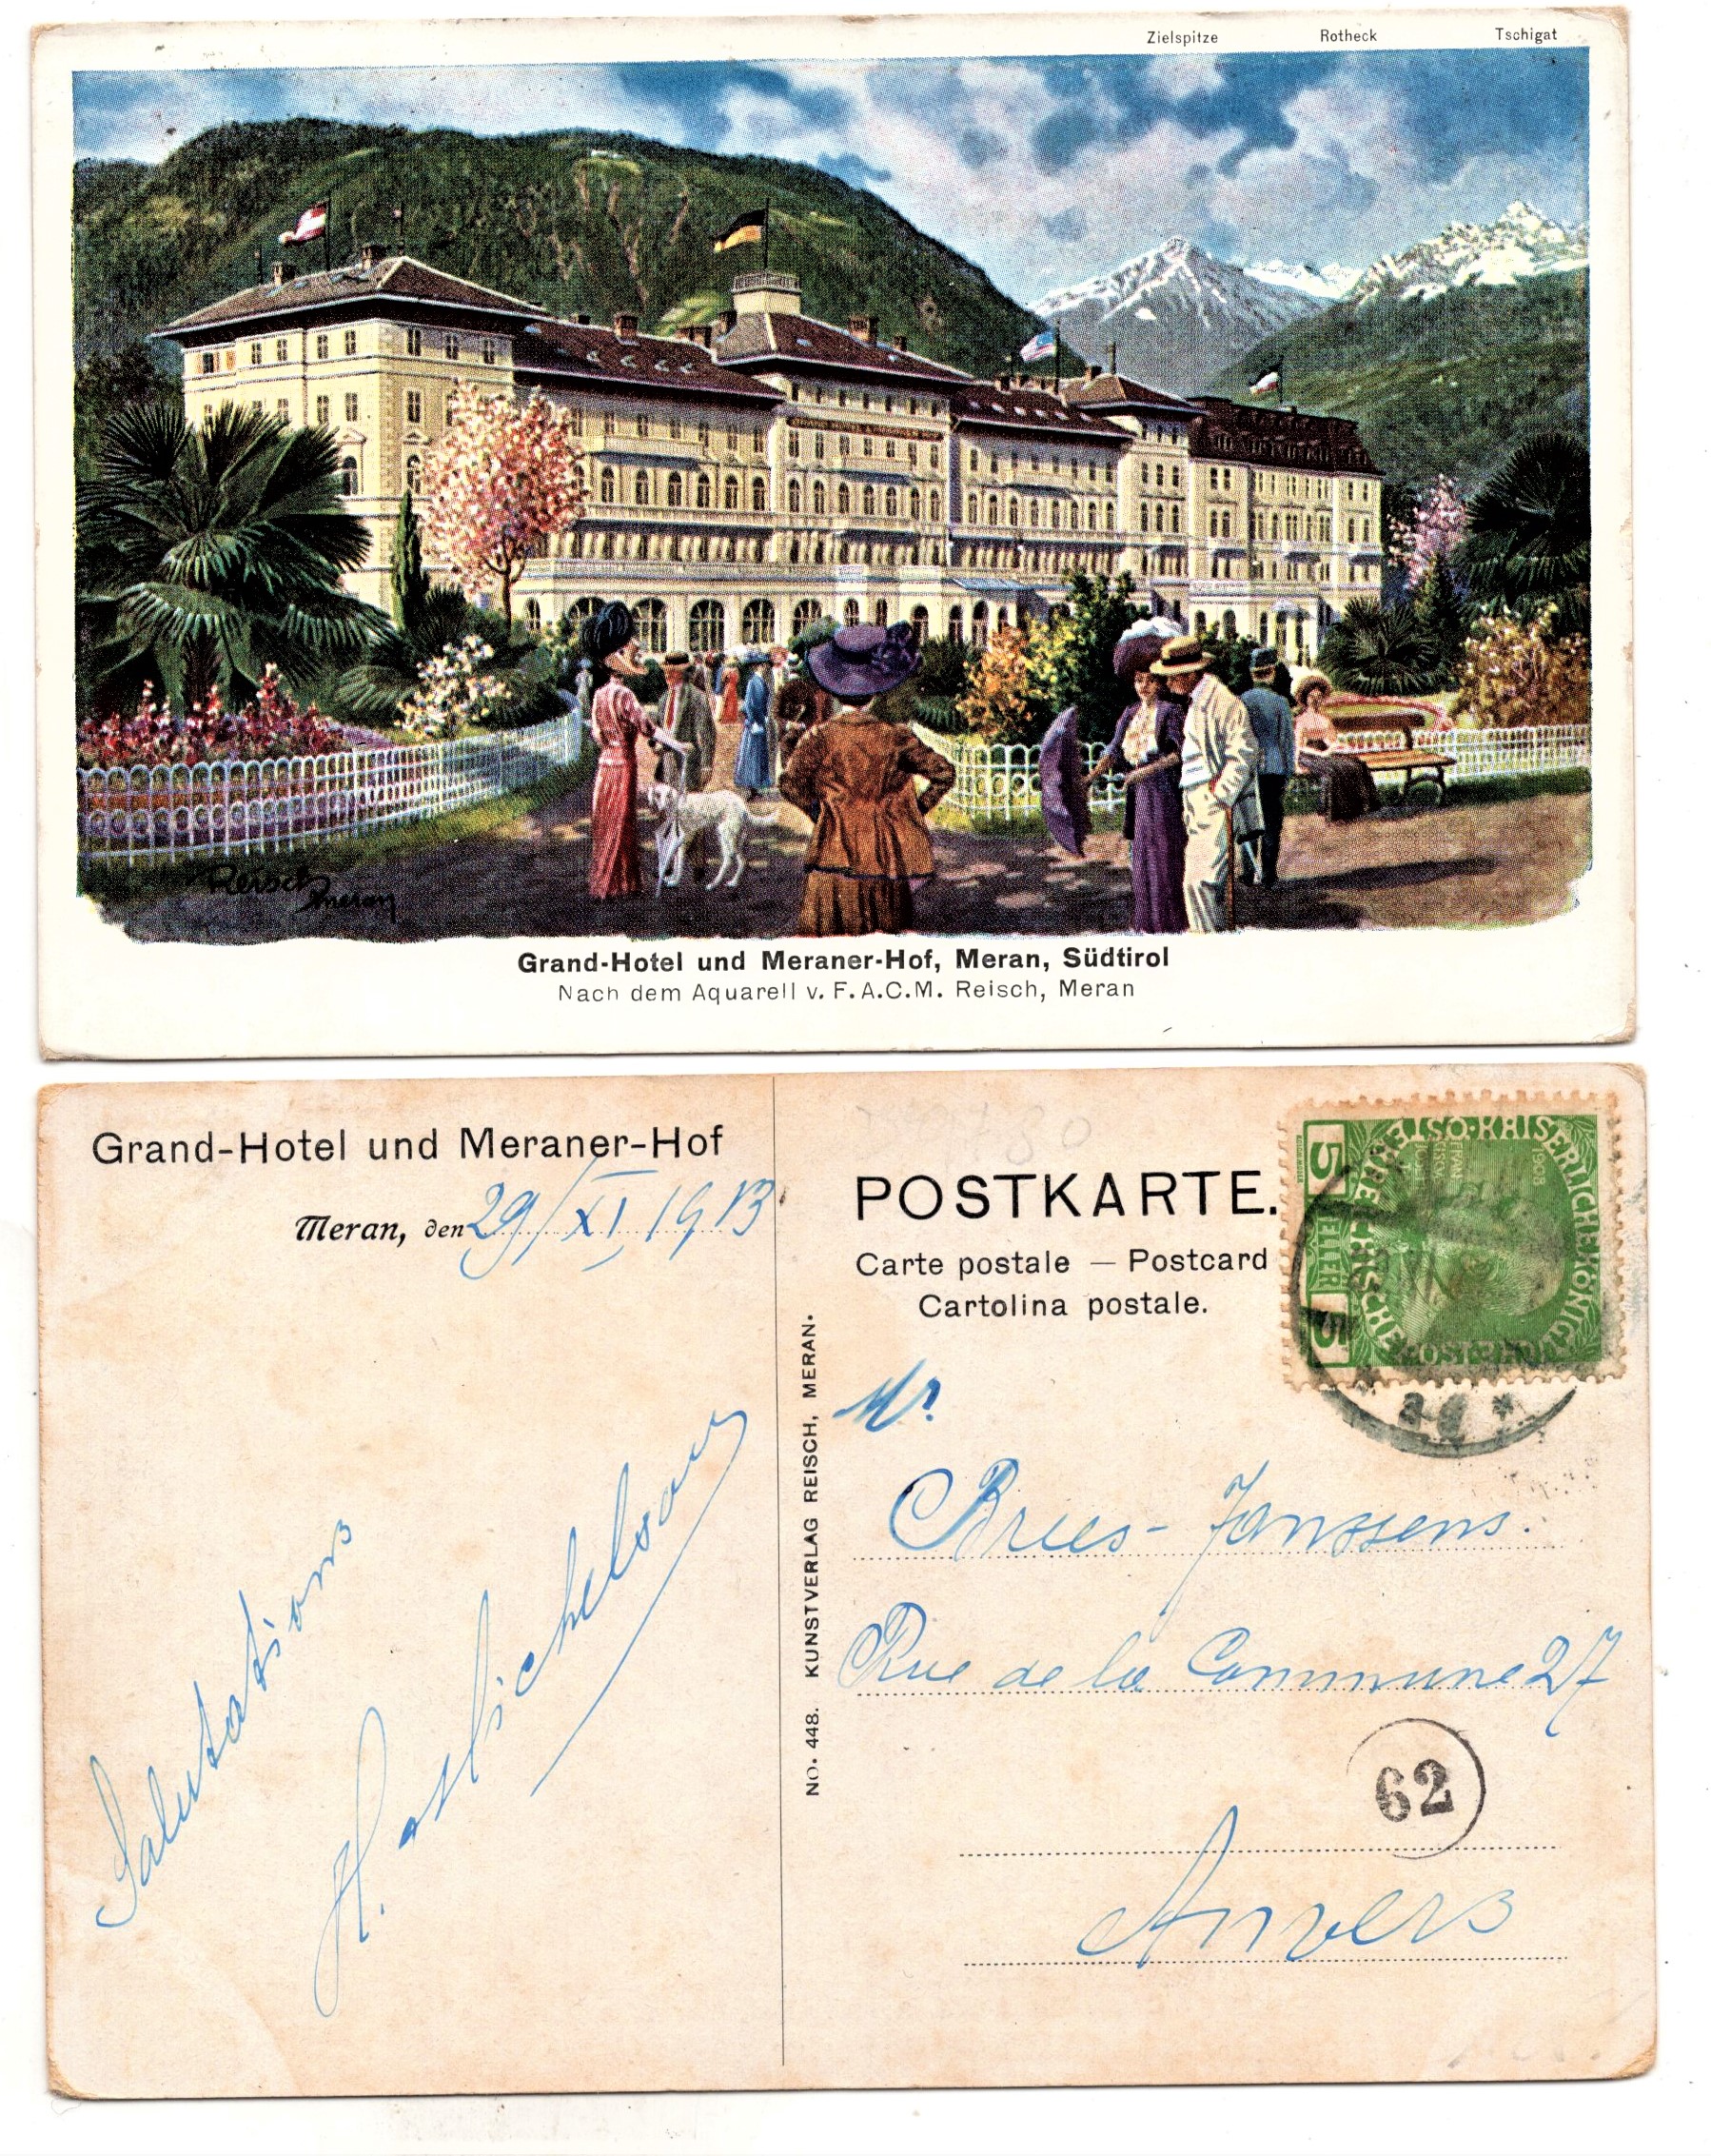 Zielspitze Rotheck Tschigat
Reisch
Meran
Grand-Hotel und Meraner-Hof, Meran, Südtirol
Nach dem Aquarell v. F. A. C. M. Reisch, Meran
Grand-Hotel und Meraner-Hof
Meran, den 29/XI 1913
Salutations
H.
NO. 448. KUNSTVERLAG REISCH, MERAN.
POSTKARTE.
Carte postale — Postcard
Cartolina postale.
5 HELLER 5
KAISERLICHE KÖNIGL
ÖSTERREICHISCHE POST
1908
Mr
Bries-Janssens.
Rue de la Commune 27
62
Anvers